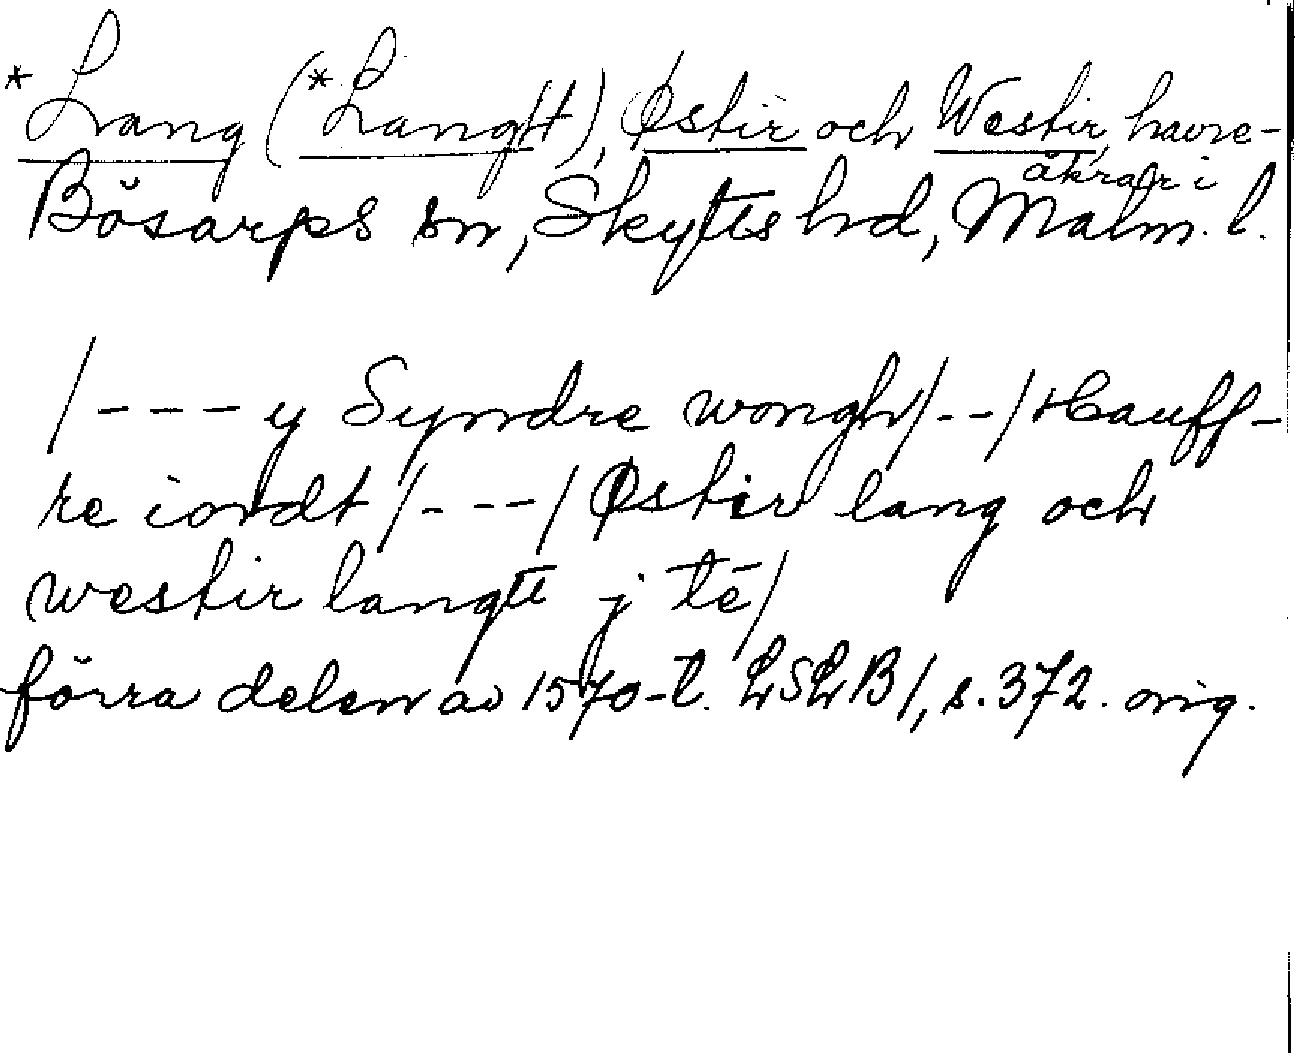 *Lang (*Langtt), Østir och Westir, havre-
åkrar i
Bösarps sn, Skytts hd, Malm. l.
/--- y Syndre wongh/--/Hauff-
re iordt/---/Østir lang och
westir langtt j té/
förra delen av 1570-t. LSLB1, s. 372. orig.